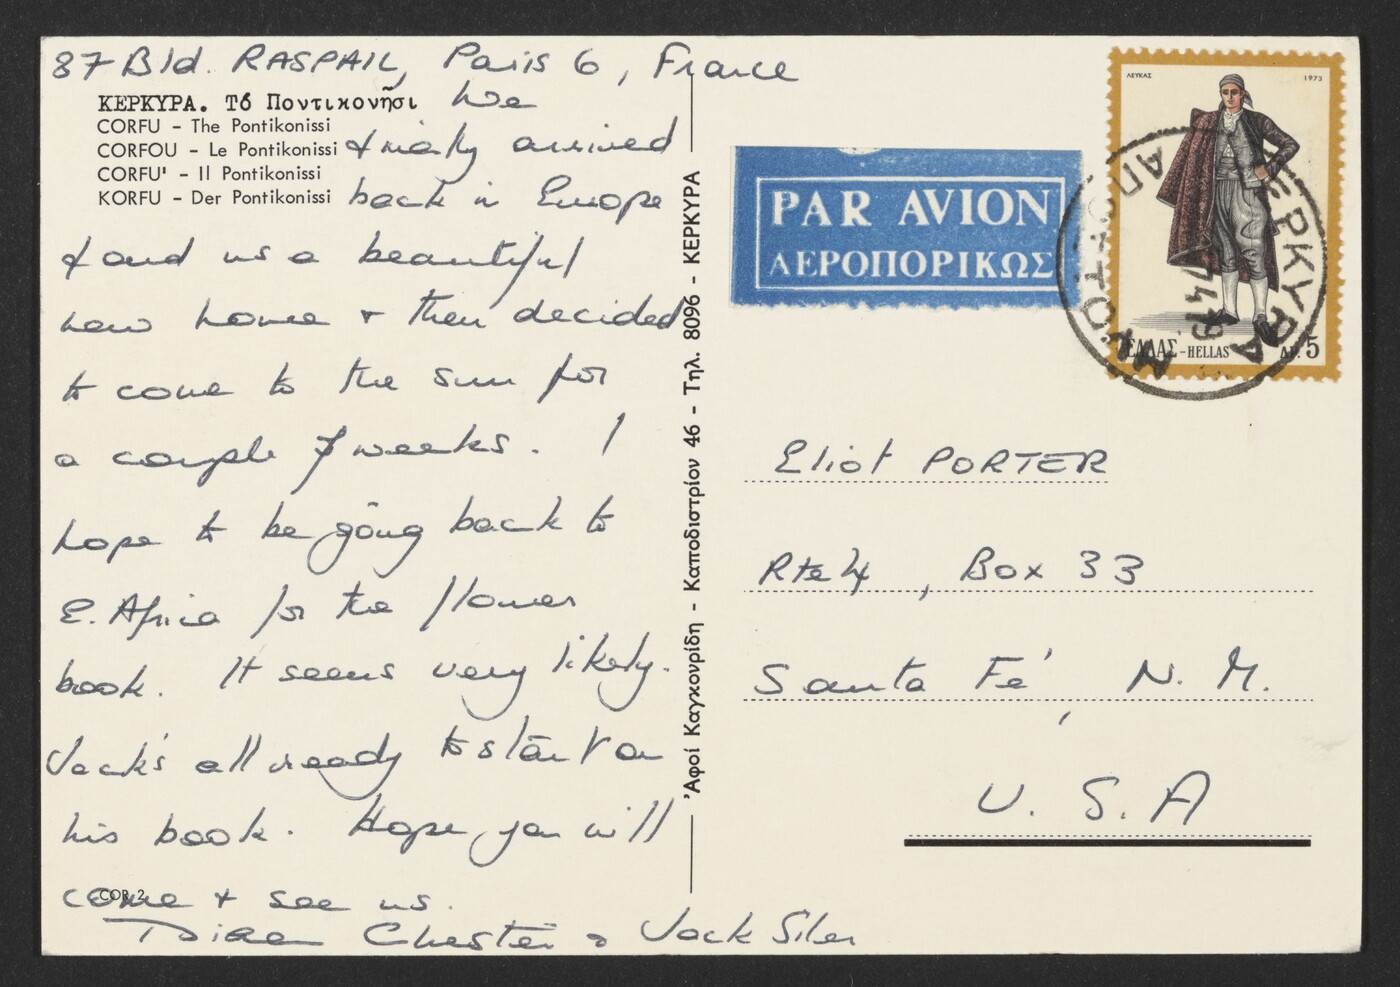 87 Bld. RASPAIL, Paris 6, France
ΚΕΡΚΥΡΑ. Τό Ποντικονῆσι
CORFU - The Pontikonissi
CORFOU - Le Pontikonissi
CORFU' - Il Pontikonissi
KORFU - Der Pontikonissi
We
finally arrived
back in Europe
& found us a beautiful
new home & then decided
to come to the sun for
a couple of weeks. I
hope to be going back to
E. Africa for the flower
book. It seems very likely.
Jack's all ready to start on
his book. Hope you will
come & see us.
Diana Chester & Jack Siler
COR 2
'Αφοί Καγκουρίδη - Καποδιστρίου 46 - Τηλ. 8096 - ΚΕΡΚΥΡΑ
PAR AVION
ΑΕΡΟΠΟΡΙΚΩΣ
ΛΕΥΚΑΣ 1973
ΕΛΛΑΣ-HELLAS ΔΡ. 5
ΚΕΡΚΥΡΑ
Eliot PORTER
Rte 4, Box 33
Santa Fé, N. M.
U. S. A